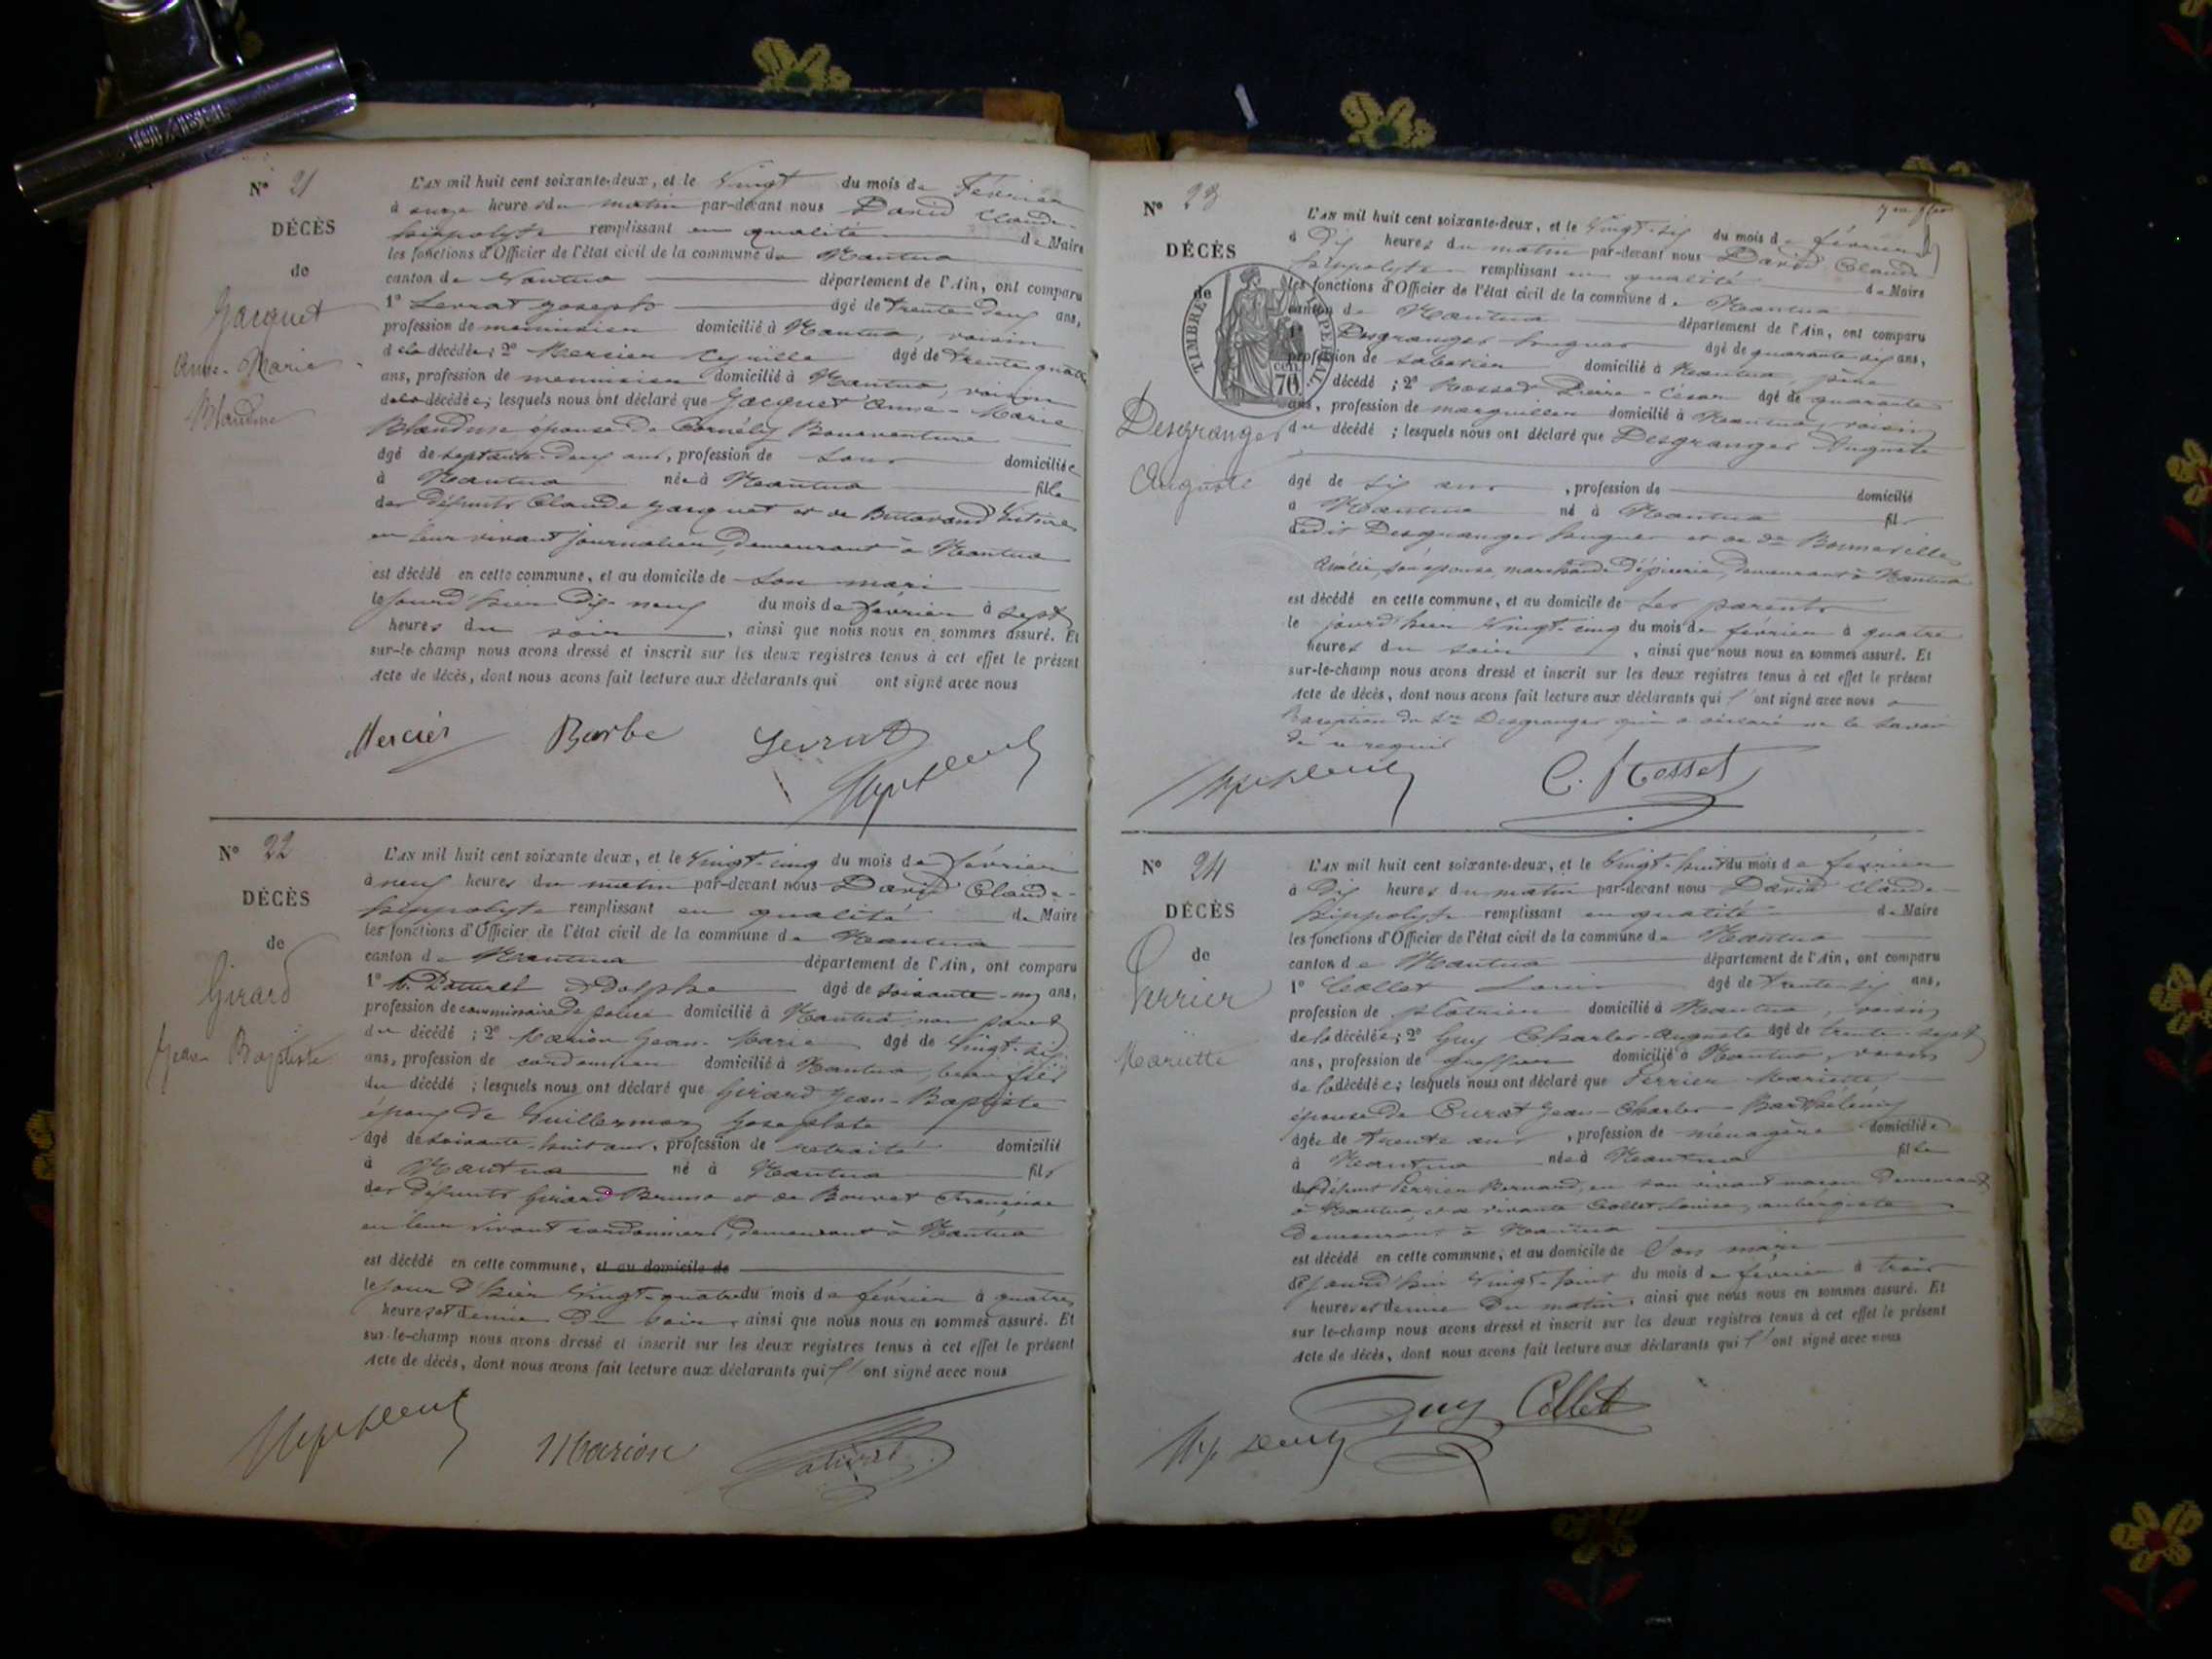 N° 21
DÉCÈS
de
Jacquet
Anne-Marie
Blandine
L'AN mil huit cent soixante-deux, et le Vingt du mois de Février
à onze heures du matin par-devant nous David Claude-
hippolyte remplissant en qualité de Maire
les fonctions d'Officier de l'état civil de la commune de Nantua
canton de Nantua département de l'Ain, ont comparu
1° Levrat Joseph âgé de trente deux ans,
profession de menuisier domicilié à Nantua, voisin
de la décédée; 2° Mercier âgé de trente quatre
ans, profession de menuisier domicilié à Nantua, voisin
de la décédée; lesquels nous ont déclaré que Jacquet Anne-Marie
Blandine épouse de Bonaventure
âgé de septante-deux ans, profession de domiciliée
à Nantua née à Nantua fille
des défunts Claude Jacquet et de
en leur vivant journaliers, demeurant à Nantua
est décédé en cette commune, et au domicile de son mari
le jourd'hier dix-neuf du mois de février à sept
heures du soir, ainsi que nous nous en sommes assuré. Et
sur-le-champ nous avons dressé et inscrit sur les deux registres tenus à cet effet le présent
Acte de décès, dont nous avons fait lecture aux déclarants qui ont signé avec nous
Mercier Barbe Levrat
N° 22
DÉCÈS
de
Girard
Jean Baptiste
L'AN mil huit cent soixante deux, et le Vingt-cinq du mois de février
à neuf heures du matin par-devant nous David Claude-
hippolyte remplissant en qualité de Maire
les fonctions d'Officier de l'état civil de la commune de Nantua
canton de Nantua département de l'Ain, ont comparu
1° Adolphe âgé de soixante-un ans,
profession de commissaire de police domicilié à Nantua, non parent
du décédé; 2° Marion Jean-Marie âgé de Vingt-six
ans, profession de cordonnier domicilié à Nantua, beau fils
du décédé; lesquels nous ont déclaré que Girard Jean-Baptiste
époux de Guillermoz Josephte
âgé de soixante-huit ans, profession de retraité domicilié
à Nantua né à Nantua fils
des défunts Girard Bruno et de Bouvet Françoise
en leur vivant cordonniers, demeurant à Nantua
est décédé en cette commune, et au domicile de
le jour d'hier Vingt-quatre du mois de février à quatre
heures et demie du soir, ainsi que nous nous en sommes assuré. Et
sur-le-champ nous avons dressé et inscrit sur les deux registres tenus à cet effet le présent
Acte de décès, dont nous avons fait lecture aux déclarants qui l'ont signé avec nous
Marion
N° 23
DÉCÈS
de
TIMBRE IMPÉRIAL
70 cen
Desgranges
Auguste
L'AN mil huit cent soixante-deux, et le Vingt-six du mois de février
à dix heures du matin par-devant nous David Claude
hippolyte remplissant en qualité de Maire
les fonctions d'Officier de l'état civil de la commune de Nantua
canton de Nantua département de l'Ain, ont comparu
1° Desgranges hugues âgé de quarante six ans,
profession de sabotier domicilié à Nantua, père
du décédé; 2° Rosset Pierre-César âgé de quarante
ans, profession de marguillier domicilié à Nantua, voisin
du décédé; lesquels nous ont déclaré que Desgranges Auguste
âgé de six ans, profession de domicilié
à Nantua né à Nantua fils
dudit Desgranges hugues et de de Bonneville
Amélie, son épouse, marchande d'épicerie, demeurant à Nantua
est décédé en cette commune, et au domicile de ses parents
le jourd'hier Vingt-cinq du mois de février à quatre
heures du soir, ainsi que nous nous en sommes assuré. Et
sur-le-champ nous avons dressé et inscrit sur les deux registres tenus à cet effet le présent
Acte de décès, dont nous avons fait lecture aux déclarants qui l'ont signé avec nous à
l'exception du Sr Desgranges qui a déclaré ne le savoir
de ce requis
C. Rosset
N° 24
DÉCÈS
de
Perrier
Mariette
L'AN mil huit cent soixante-deux, et le Vingt-huit du mois de février
à dix heures du matin par-devant nous David Claude-
hippolyte remplissant en qualité de Maire
les fonctions d'Officier de l'état civil de la commune de Nantua
canton de Nantua département de l'Ain, ont comparu
1° Collet Louis âgé de trente-six ans,
profession de plâtrier domicilié à Nantua, voisin
de la décédée; 2° Guy Charles-Auguste âgé de trente-sept
ans, profession de greffier domicilié à Nantua, voisin
de la décédée; lesquels nous ont déclaré que Perrier Mariette,
épouse de Curat Jean-Charles-Barthélemy
âgée de trente ans, profession de ménagère domiciliée
à Nantua née à Nantua fille
de défunt Perrier Bernard, en son vivant maçon demeurant
à Nantua, et de vivante Collet Louise, aubergiste
demeurant à Nantua
est décédé en cette commune, et au domicile de son mari
le jourd'hui Vingt-huit du mois de février à trois
heures et demie du matin, ainsi que nous nous en sommes assuré. Et
sur le-champ nous avons dressé et inscrit sur les deux registres tenus à cet effet le présent
Acte de décès, dont nous avons fait lecture aux déclarants qui l'ont signé avec nous
Guy Collet